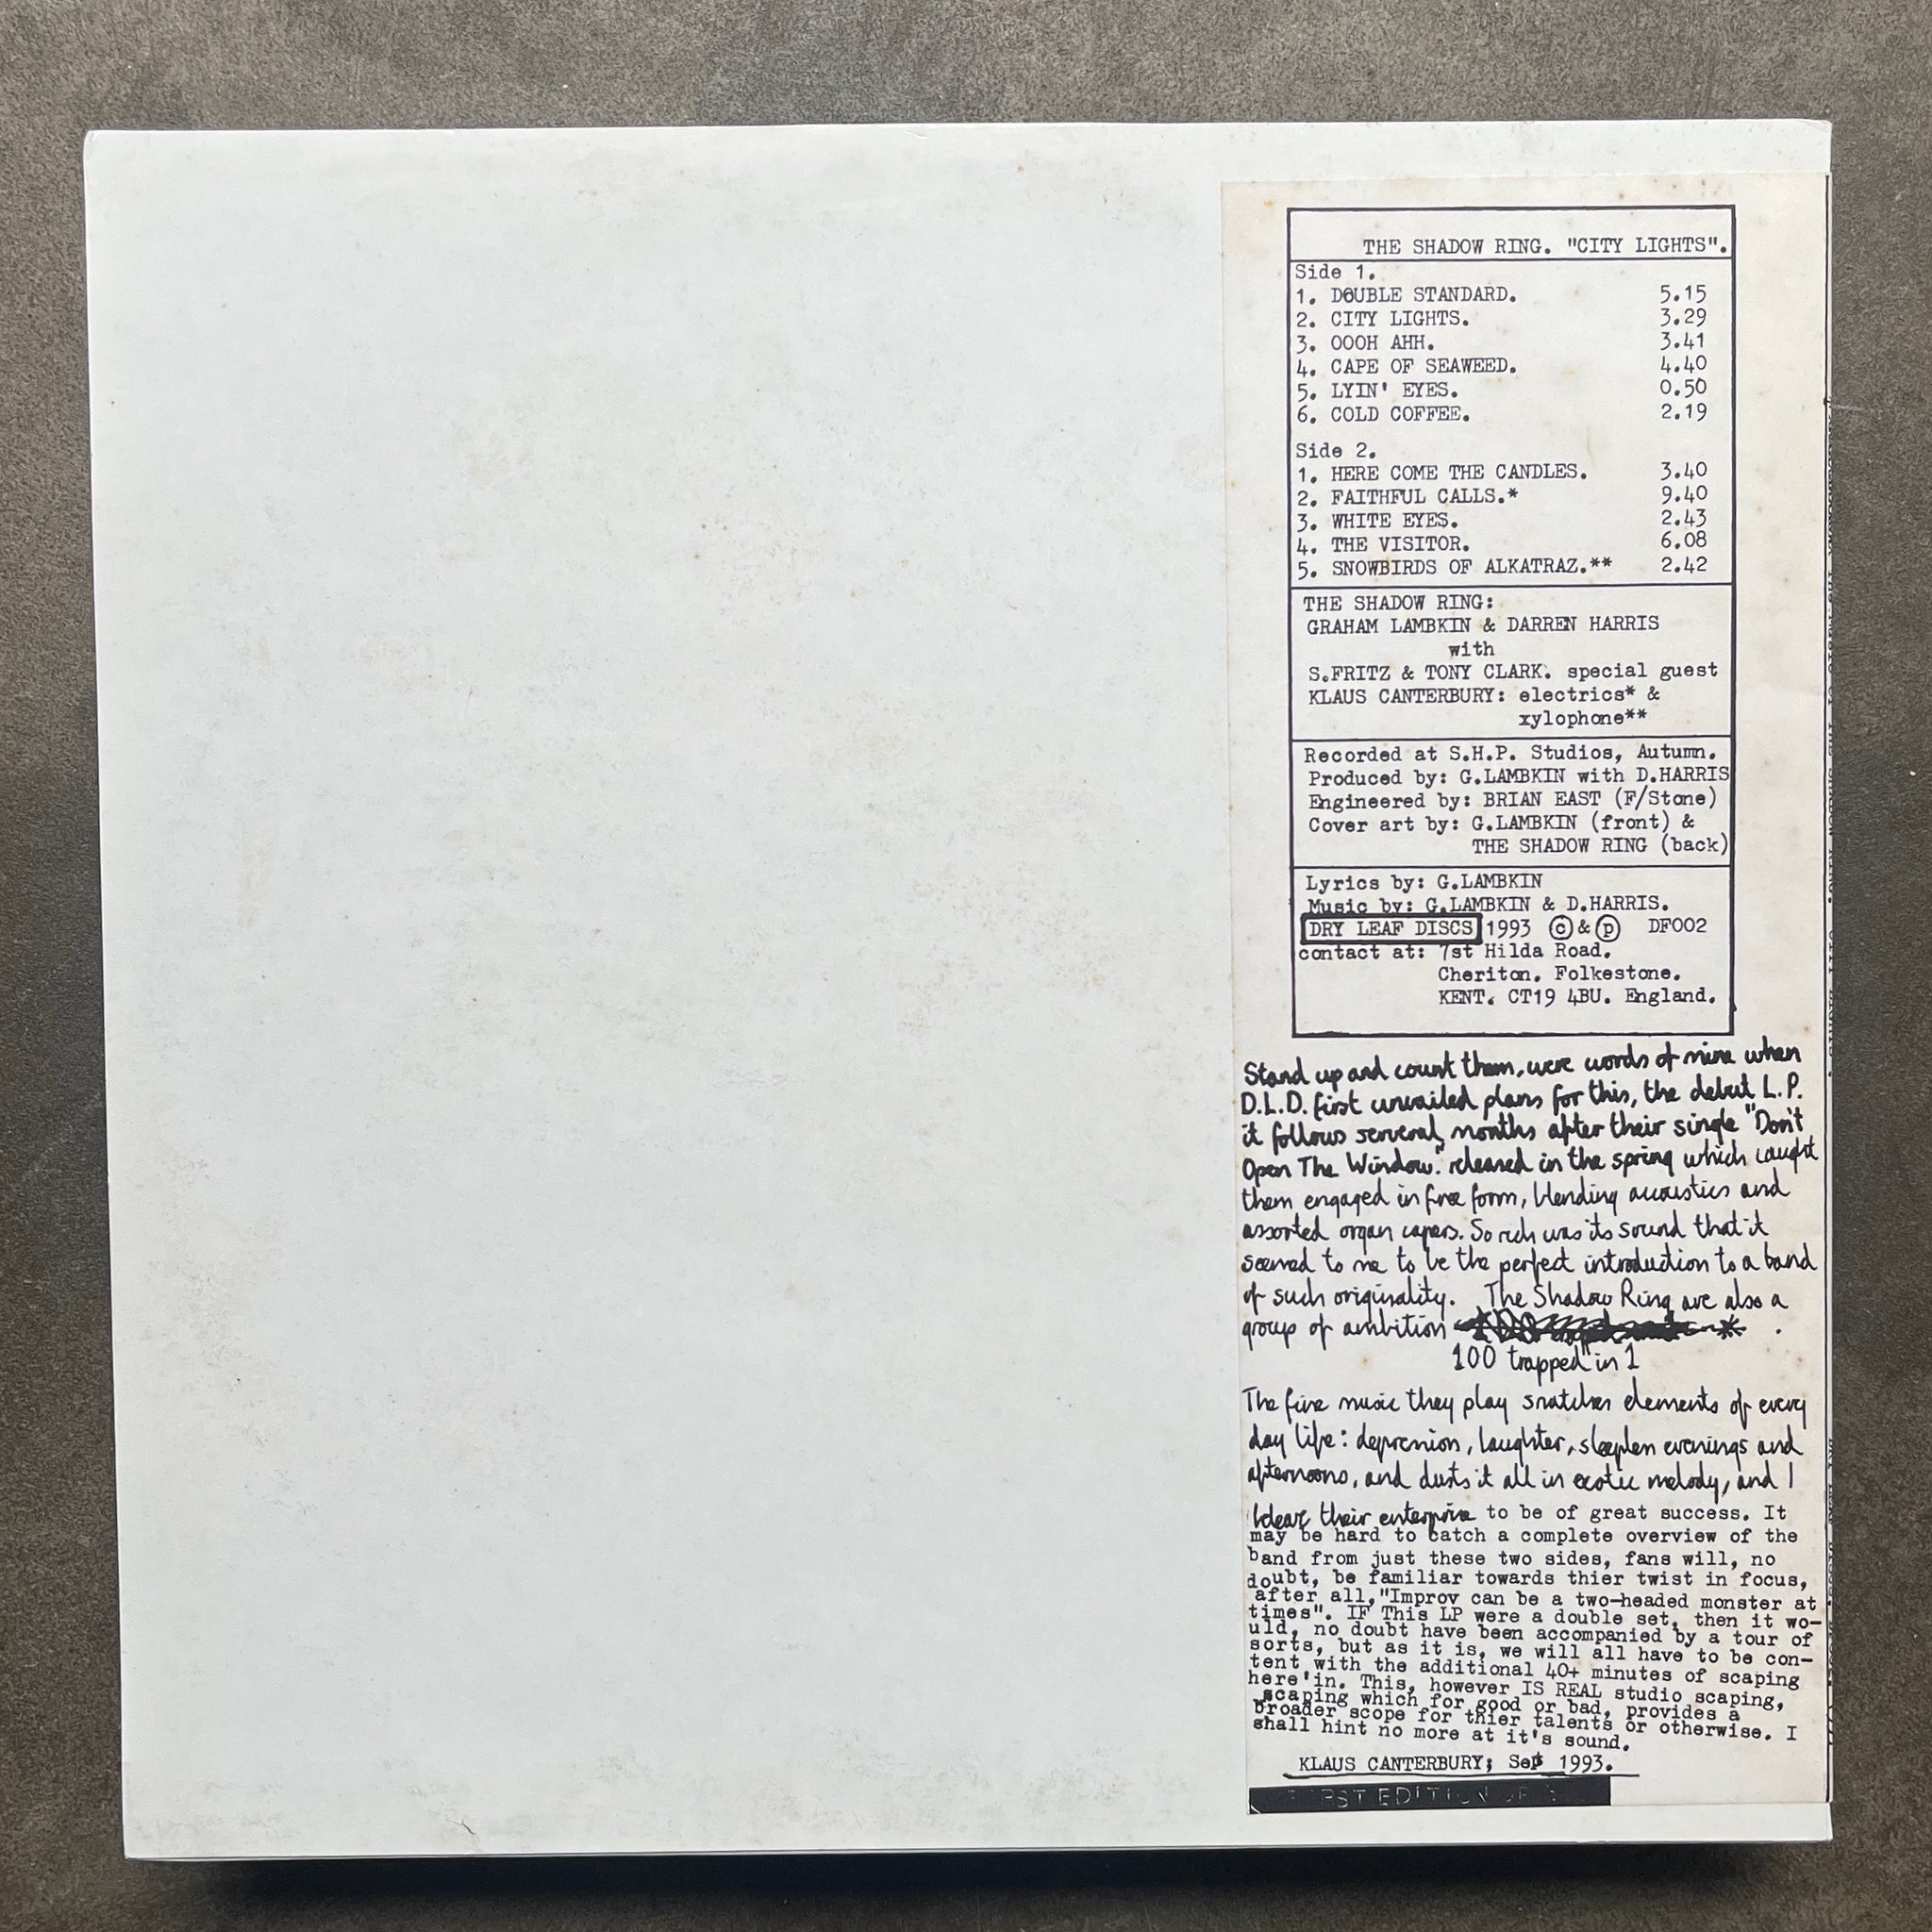 THE SHADOW RING. "CITY LIGHTS".
Side 1.
1. DOUBLE STANDARD. 5.15
2. CITY LIGHTS. 3.29
3. OOOH AHH. 3.41
4. CAPE OF SEAWEED. 4.40
5. LYIN' EYES. 0.50
6. COLD COFFEE. 2.19
Side 2.
1. HERE COME THE CANDLES. 3.40
2. FAITHFUL CALLS.* 9.40
3. WHITE EYES. 2.43
4. THE VISITOR. 6.08
5. SNOWBIRDS OF ALKATRAZ.** 2.42
THE SHADOW RING:
GRAHAM LAMBKIN & DARREN HARRIS
with
S.FRITZ & TONY CLARK. special guest
KLAUS CANTERBURY: electrics* &
xylophone**
Recorded at S.H.P. Studios, Autumn.
Produced by: G.LAMBKIN with D.HARRIS
Engineered by: BRIAN EAST (F/Stone)
Cover art by: G.LAMBKIN (front) &
THE SHADOW RING (back)
Lyrics by: G.LAMBKIN
Music by: G.LAMBKIN & D.HARRIS.
DRY LEAF DISCS 1993 ©&℗ DF002
contact at: 7st Hilda Road.
Cheriton. Folkestone.
KENT. CT19 4BU. England.
Stand up and count them, were words of mine when
D.L.D. first unvailed plans for this, the debut L.P.
it follows serveral months after their single "Don't
Open The Window." released in the spring which caught
them engaged in free form, blending acoustics and
assorted organ capers. So rich was its sound that it
seemed to me to be the perfect introduction to a band
of such originality. The Shadow Ring are also a
group of ambition
100 trapped in 1
The fine music they play snatches elements of every
day life: depression, laughter, sleepless evenings and
afternoons, and dusts it all in exotic melody, and I
their enterprise to be of great success. It
may be hard to catch a complete overview of the
band from just these two sides, fans will, no
doubt, be familiar towards thier twist in focus,
after all,"Improv can be a two-headed monster at
times". IF This LP were a double set, then it wo-
uld, no doubt have been accompanied by a tour of
sorts, but as it is, we will all have to be con-
tent with the additional 40+ minutes of scaping
here'in. This, however IS REAL studio scaping,
scaping which for good or bad, provides a
broader scope for thier talents or otherwise. I
shall hint no more at it's sound.
KLAUS CANTERBURY; Sep 1993.
EDITION